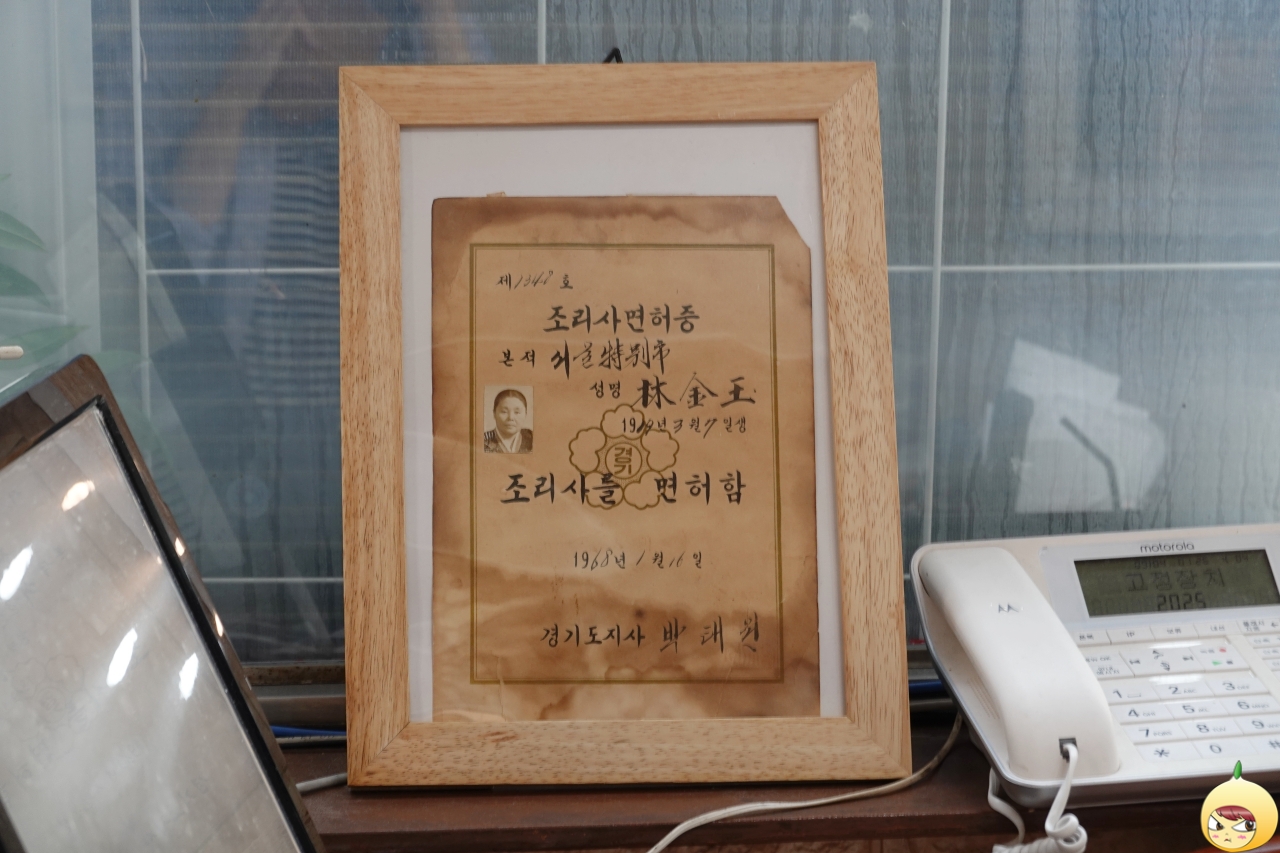 제1348호
조리사면허증
본적 서울特別市
성명 林金玉
19 년 3월 7일생
경기
조리사를 면허함
1968년 1월 16일
경기도지사 박태원
motorola
고정장치
2025
1 2 ABC 3 DEF
4 GHI 5 JKL 6 MNO
7 PQRS 8 TUV 9 WXYZ
* 0 #